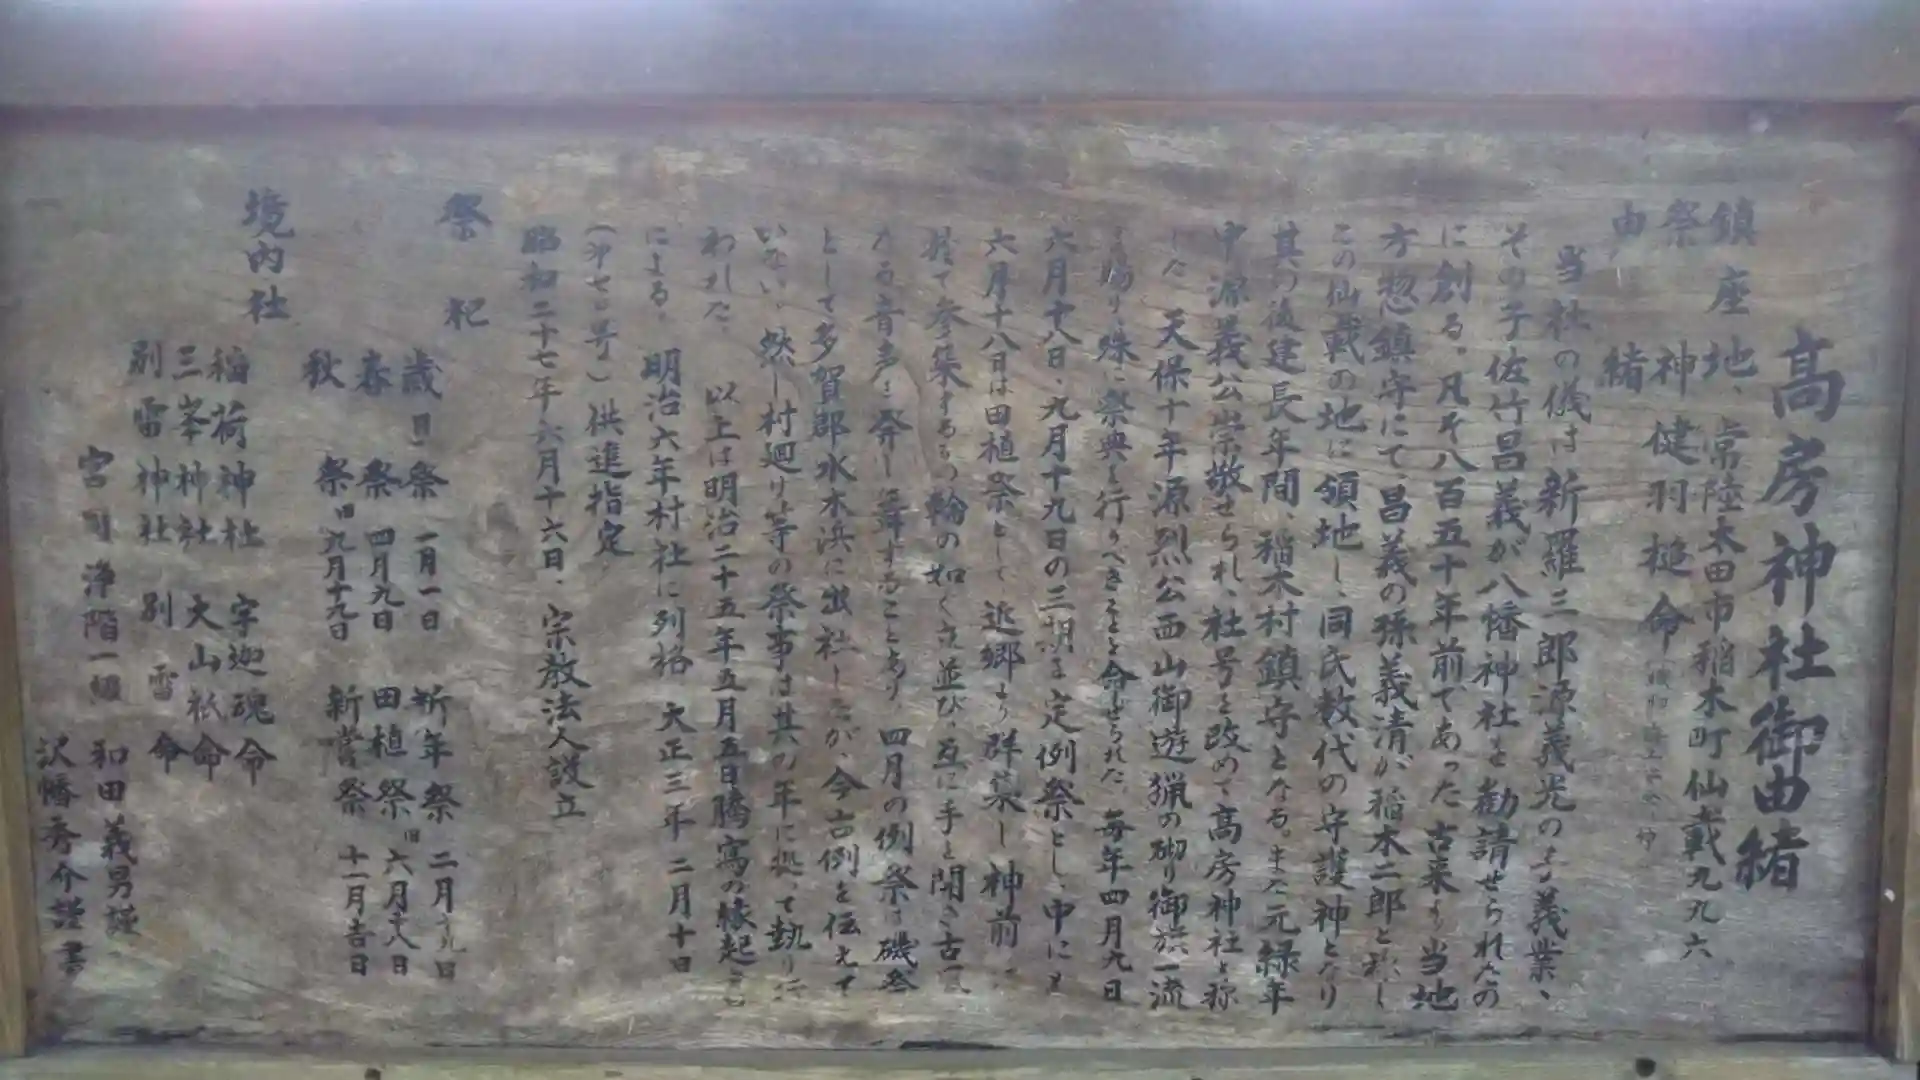 髙房神社御由緒
鎮座地、常陸太田市稲木町仙載九九六
祭神 健羽槌命
由緒
当社の儀は新羅三郎源義光の子義業、
その子佐竹昌義が八幡神社を勧請せられたの
に創る。凡そ八百五十年前であった古来より当地
方惣鎮守にて、昌義の孫義清が稲木二郎と称し
この仙載の地に領地し、同氏数代の守護神となり
其の後建長年間、稲木村鎮守となる。また元緑年
中源義公崇敬せられ、社号を改めて髙房神社と称
した 天保十年源烈公西山御遊猟の砌り御旗一流
を賜り殊に祭典を行うべきことを命ぜられた。毎年四月九日
六月十八日、九月十九日の三期を定例祭とし、中にも
六月十八日は田植祭として近郷より群集し神前に
於て参集するもの輪の如く立並び、互に手を開き古風
なる音声を発し舞することあり 四月の例祭は磯祭
として多賀郡水木浜に出社したが、今古例を伝えて
いない、然し村廻り等の祭事は其の年に拠って執り行
われた、
以上は明治二十五年五月五日謄寫の縁起
による。
明治六年村社に列格 大正三年二月十日
供進指定
昭和二十七年六月十六日、宗教法人設立
祭祀
歳旦祭 一月一日 祈年祭 二月十九日
春祭 四月九日 田植祭 旧六月十八日
秋祭 旧九月十九日 新嘗祭 十一月吉日
境内社
稲荷神社 宇迦魂命
三峯神社 大山祇命
別雷神社 別雷命
宮司 浄階一級 和田義男謹
沢幡秀介謹書